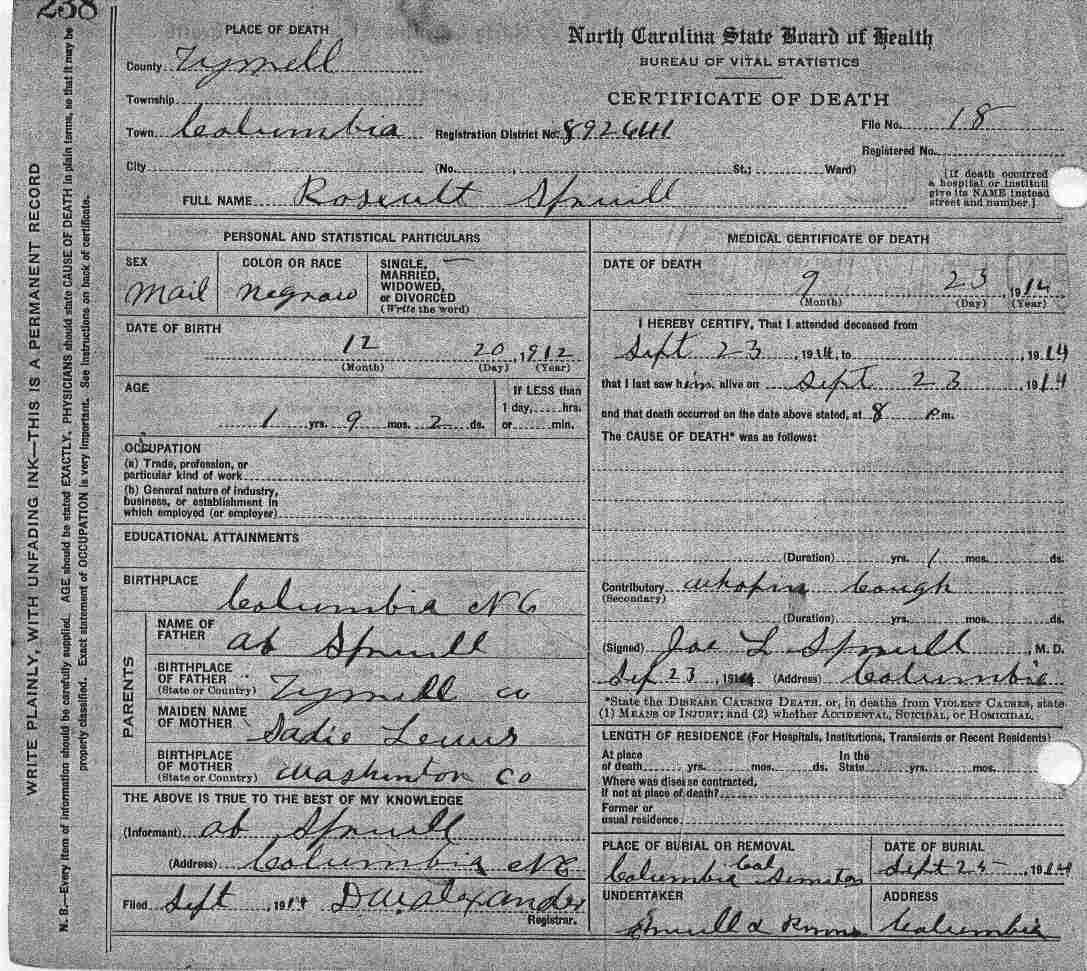 238
WRITE PLAINLY, WITH UNFADING INK—THIS IS A PERMANENT RECORD
N. B.—Every item of information should be carefully supplied. AGE should be stated EXACTLY. PHYSICIANS should state CAUSE OF DEATH in plain terms, so that it may be
properly classified. Exact statement of OCCUPATION is very important. See instructions on back of certificate.
PLACE OF DEATH
County Tyrrell
Township
Town Columbia Registration District No. 892641
City (No. , St.; Ward)
FULL NAME Spruill
North Carolina State Board of Health
BUREAU OF VITAL STATISTICS
CERTIFICATE OF DEATH
File No. 18
Registered No.
[If death occurred
a hospital or instituti
give its NAME instead
street and number.]
PERSONAL AND STATISTICAL PARTICULARS
SEX
Mail
COLOR OR RACE
Negrow
SINGLE, —
MARRIED,
WIDOWED,
or DIVORCED
(Write the word)
DATE OF BIRTH
12 20, 1912
(Month) (Day) (Year)
AGE
1 yrs. 9 mos. 2 ds.
If LESS than
1 day, hrs.
or min.
OCCUPATION
(a) Trade, profession, or
particular kind of work
(b) General nature of industry,
business, or establishment in
which employed (or employer)
EDUCATIONAL ATTAINMENTS
BIRTHPLACE
Columbia NC
PARENTS
NAME OF
FATHER
ab Spruill
BIRTHPLACE
OF FATHER
(State or Country) Tyrrell Co
MAIDEN NAME
OF MOTHER
Sadie Lewis
BIRTHPLACE
OF MOTHER
(State or Country) Washinton Co
THE ABOVE IS TRUE TO THE BEST OF MY KNOWLEDGE
(Informant) ab Spruill
(Address) Columbia NC
Filed Sept , 1914 D W Alexander
Registrar.
MEDICAL CERTIFICATE OF DEATH
DATE OF DEATH
9 23, 1914
(Month) (Day) (Year)
I HEREBY CERTIFY, That I attended deceased from
Sept 23, 1914, to , 1914
that I last saw him alive on Sept 23 1914
and that death occurred on the date above stated, at 8 P.m.
The CAUSE OF DEATH* was as follows:
(Duration) yrs. 1 mos. ds.
Contributory Cough
(Secondary)
(Duration) yrs. mos. ds.
(Signed) Joe L Spruill, M. D.
Sep 23, 1914 (Address) Columbia
*State the DISEASE CAUSING DEATH, or, in deaths from VIOLENT CAUSES, state
(1) MEANS OF INJURY; and (2) whether ACCIDENTAL, SUICIDAL, or HOMICIDAL.
LENGTH OF RESIDENCE (For Hospitals, Institutions, Transients or Recent Residents)
At place In the
of death yrs. mos. ds. State yrs. mos.
Where was disease contracted,
If not at place of death?
Former or
usual residence
PLACE OF BURIAL OR REMOVAL
Columbia Col
DATE OF BURIAL
Sept 25, 1914
UNDERTAKER
Spruill &
ADDRESS
Columbia